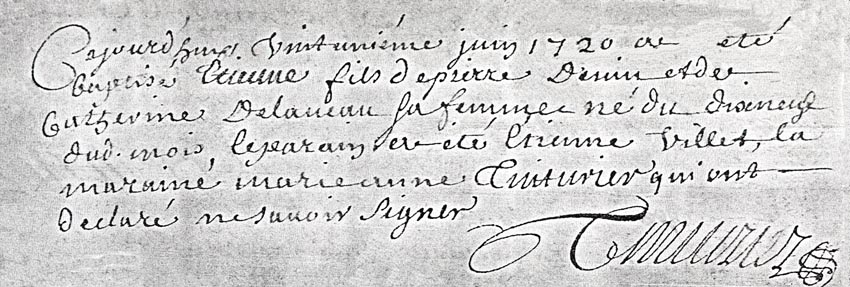 Cejourd'huy Vint unième juin 1720 a été
baptisé Etienne fils de pierre Denin et de
Catherine Delaveau sa femme né du dixneuf
dud. mois, le parain a été Etienne Villet, la
maraine marie anne Tinturier qui ont
declaré ne savoir signer